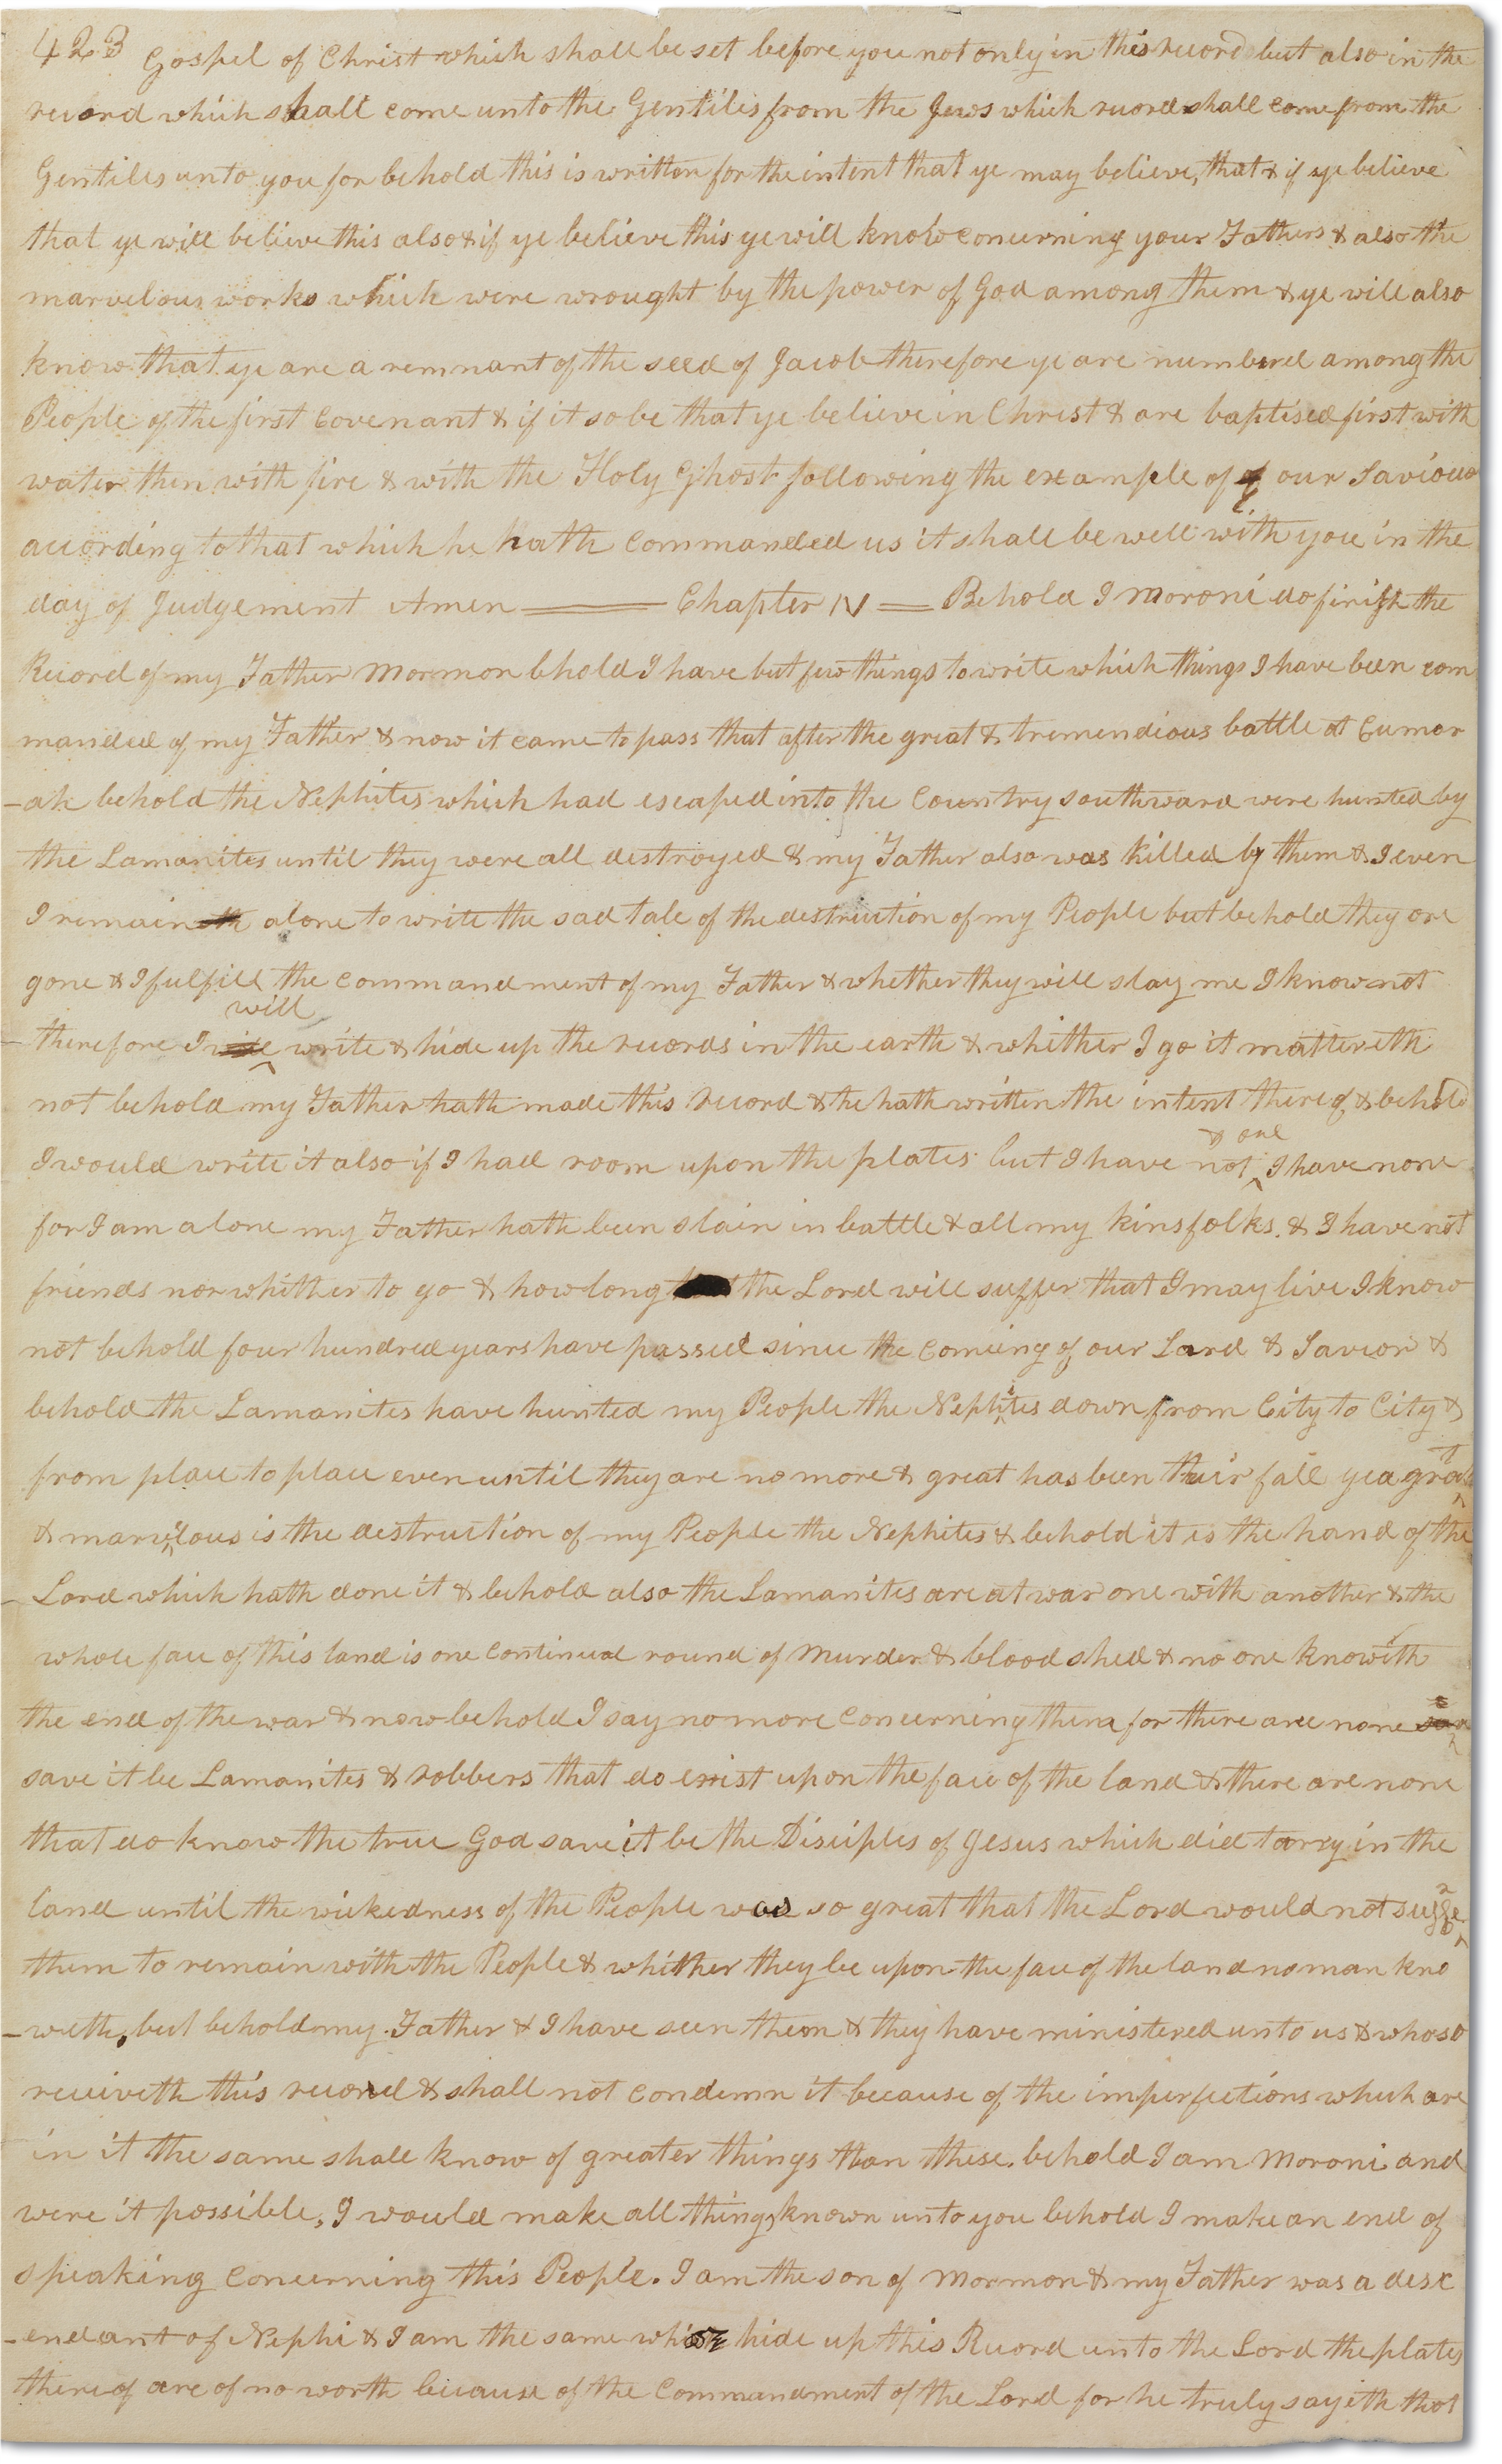 423 Gospel of Christ which shall be set before you not only in this record but also in the
record which shall come unto the Gentiles from the Jews which record shall come from the
Gentiles unto you for behold this is written for the intent that ye may believe, that & if ye believe
that ye will believe this also & if ye believe this ye will know concerning your Fathers & also the
marvelous works which were wrought by the power of God among them & ye will also
know that ye are a remnant of the seed of Jacob therefore ye are numbered among the
People of the first covenant & if it so be that ye believe in Christ & are baptised first with
water then with fire & with the Holy Ghost following the example of our Saviour
according to that which he hath commanded us it shall be well with you in the
day of Judgement Amen — Chapter IV — Behold I Moroni do finish the
Record of my Father Mormon bhold I have but few things to write which things I have been com
manded of my Father & now it came to pass that after the great & tremendious battle at Cumor
-ah behold the Nephites which had escaped into the Country southward were hunted by
the Lamanites until they were all destroyed & my Father also was killed by them & I even
I remain alone to write the sad tale of the destruction of my People but behold they are
gone & I fulfill the commandment of my Father & whether they will slay me I know not
will
therefore I write & hide up the records in the earth & whither I go it mattereth
not behold my Father hath made this record & he hath written the intent thereof & behold
& oul
I would write it also if I had room upon the plates but I have not I have none
for I am alone my Father hath been slain in battle & all my kinsfolks. & I have not
friends nor whither to go & how long the Lord will suffer that I may live I know
not behold four hundred years have passed since the coming of our Lord & Savior &
behold the Lamanites have hunted my People the Nephites down from City to City &
from place to place even until they are no more & great has been their fall yea great
& marvelous is the destruction of my People the Nephites & behold it is the hand of the
Lord which hath done it & behold also the Lamanites are at war one with another & the
whole face of this land is one continual round of murder & blood shed & no one knoweth
the end of the war & now behold I say no more concerning them for there are none
save it be Lamanites & robbers that do exist upon the face of the land & there are none
that do know the true God save it be the Disciples of Jesus which did tarry in the
land until the wickedness of the People was so great that the Lord would not suffer
them to remain with the People & whither they be upon the face of the land no man kno
-weth, but behold my Father & I have seen them & they have ministered unto us & whoso
receiveth this record & shall not condemn it because of the imperfections which are
in it the same shall know of greater things than these. behold I am Moroni and
were it possible, I would make all things known unto you behold I make an end of
speaking concerning this People. I am the son of Mormon & my Father was a desc
-endant of Nephi & I am the same which hide up this Record unto the Lord the plates
thereof are of no worth because of the Commandment of the Lord for he truly sayeth that